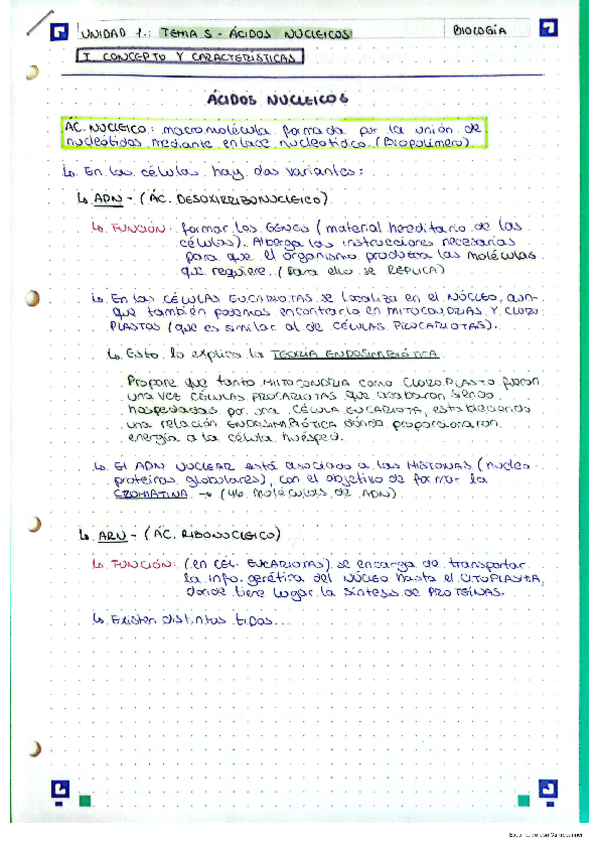 UNIDAD 1.: TEMA 5 - ÁCIDOS NUCLEICOS
BIOLOGÍA
I. CONCEPTO Y CARACTERÍSTICAS
ÁCIDOS NUCLEICOS
ÁC. NUCLEICO: macromolécula formada por la unión de
nucleótidos mediante enlace nucleotídico. (Biopolímero)
↳ En las células hay dos variantes:
↳ ADN - (ÁC. DESOXIRRIBONUCLEICO)
↳ FUNCIÓN: formar los GENES (material hereditario de las
células). Alberga las instrucciones necesarias
para que el organismo produzca las moléculas
que requiere. (Para ello se REPLICA)
↳ En las CÉLULAS EUCARIOTAS se localiza en el NÚCLEO, aun-
que también podemos encontrarlo en MITOCONDRIAS Y CLORO-
PLASTOS (que es similar al de CÉLULAS PROCARIOTAS).
↳ Esto lo explica la TEORÍA ENDOSIMBIÓTICA
Propone que tanto MITOCONDRIA como CLOROPLASTO fueron
una vez CÉLULAS PROCARIOTAS que acabaron siendo
hospedadas por una CÉLULA EUCARIOTA, estableciendo
una relación ENDOSIMBIÓTICA dónde proporcionaron
energía a la célula huésped.
↳ El ADN NUCLEAR está asociado a las HISTONAS (nucleo-
proteínas globulares), con el objetivo de formar la
CROMATINA. → (46 moléculas de ADN)
↳ ARN - (ÁC. RIBONUCLEICO)
↳ FUNCIÓN: (en CÉL. EUCARIOTAS) se encarga de transportar
la info. genética del NÚCLEO hasta el CITOPLASMA,
donde tiene lugar la síntesis de PROTEÍNAS.
↳ Existen distintos tipos...